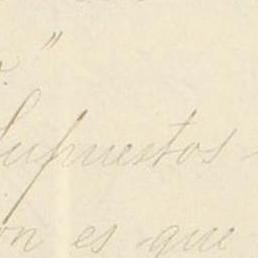 "
Supuestos -
on es que